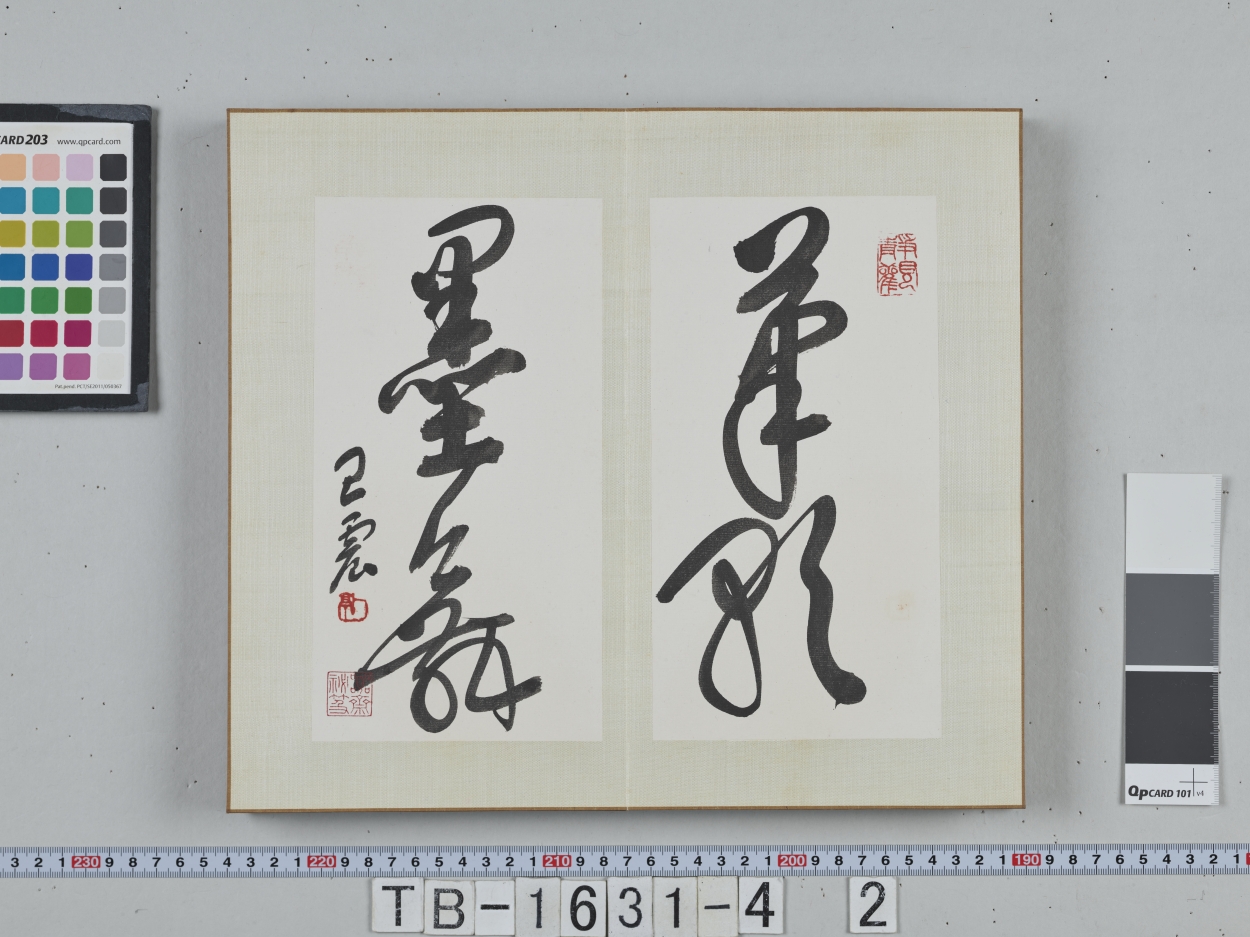 筆歌
墨舞
王震
CARD 203 www.qpcard.com
Pat.pend. PCT/SE2011/050367
QPCARD 101 v4
3 2 1 230 9 8 7 6 5 4 3 2 1 220 9 8 7 6 5 4 3 2 1 210 9 8 7 6 5 4 3 2 1 200 9 8 7 6 5 4 3 2 1 190 9 8 7 6 5 4 3 2 1
TB-1631-4 2